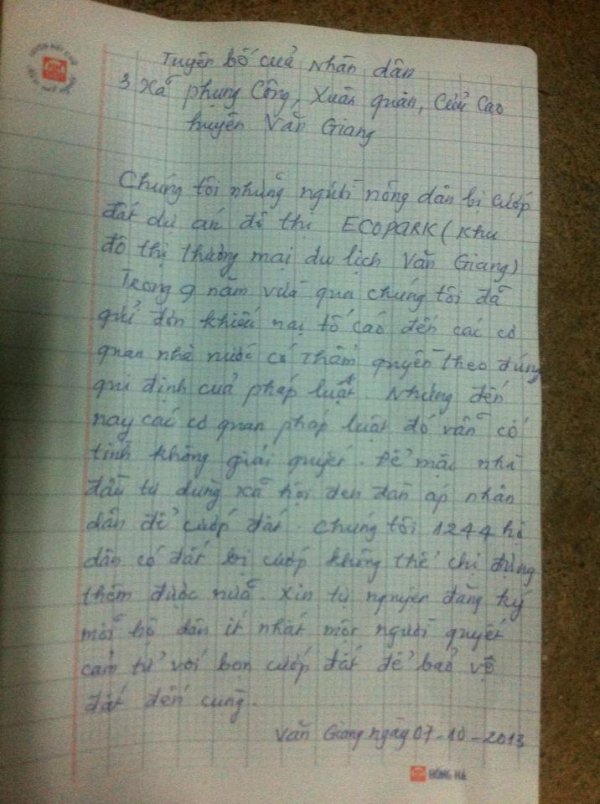 Tuyên bố của Nhân dân
3 Xã phụng Công, Xuân quan, Cửu Cao
huyện Văn Giang
Chúng tôi những người nông dân bị cướp
đất dự án đô thị ECOPARK (Khu
đô thị thương mại du lịch Văn Giang)
Trong 9 năm vừa qua chúng tôi đã
gửi đơn khiếu nại tố cáo đến các cơ
quan nhà nước có thẩm quyền theo đúng
qui định của pháp luật. Nhưng đến
nay các cơ quan pháp luật đó vẫn cố
tình không giải quyết. Để mặc nhà
đầu tư dùng xã hội đen đàn áp nhân
dân để cướp đất. Chúng tôi 1244 hộ
dân có đất bị cướp không thể chỉ dùng
thêm được nữa. Xin tự nguyện đăng ký
mỗi hộ dân ít nhất một người quyết
cảm tử với bọn cướp đất để bảo vệ
đất đến cùng.
Văn Giang ngày 07-10-2013
HỒNG HÀ